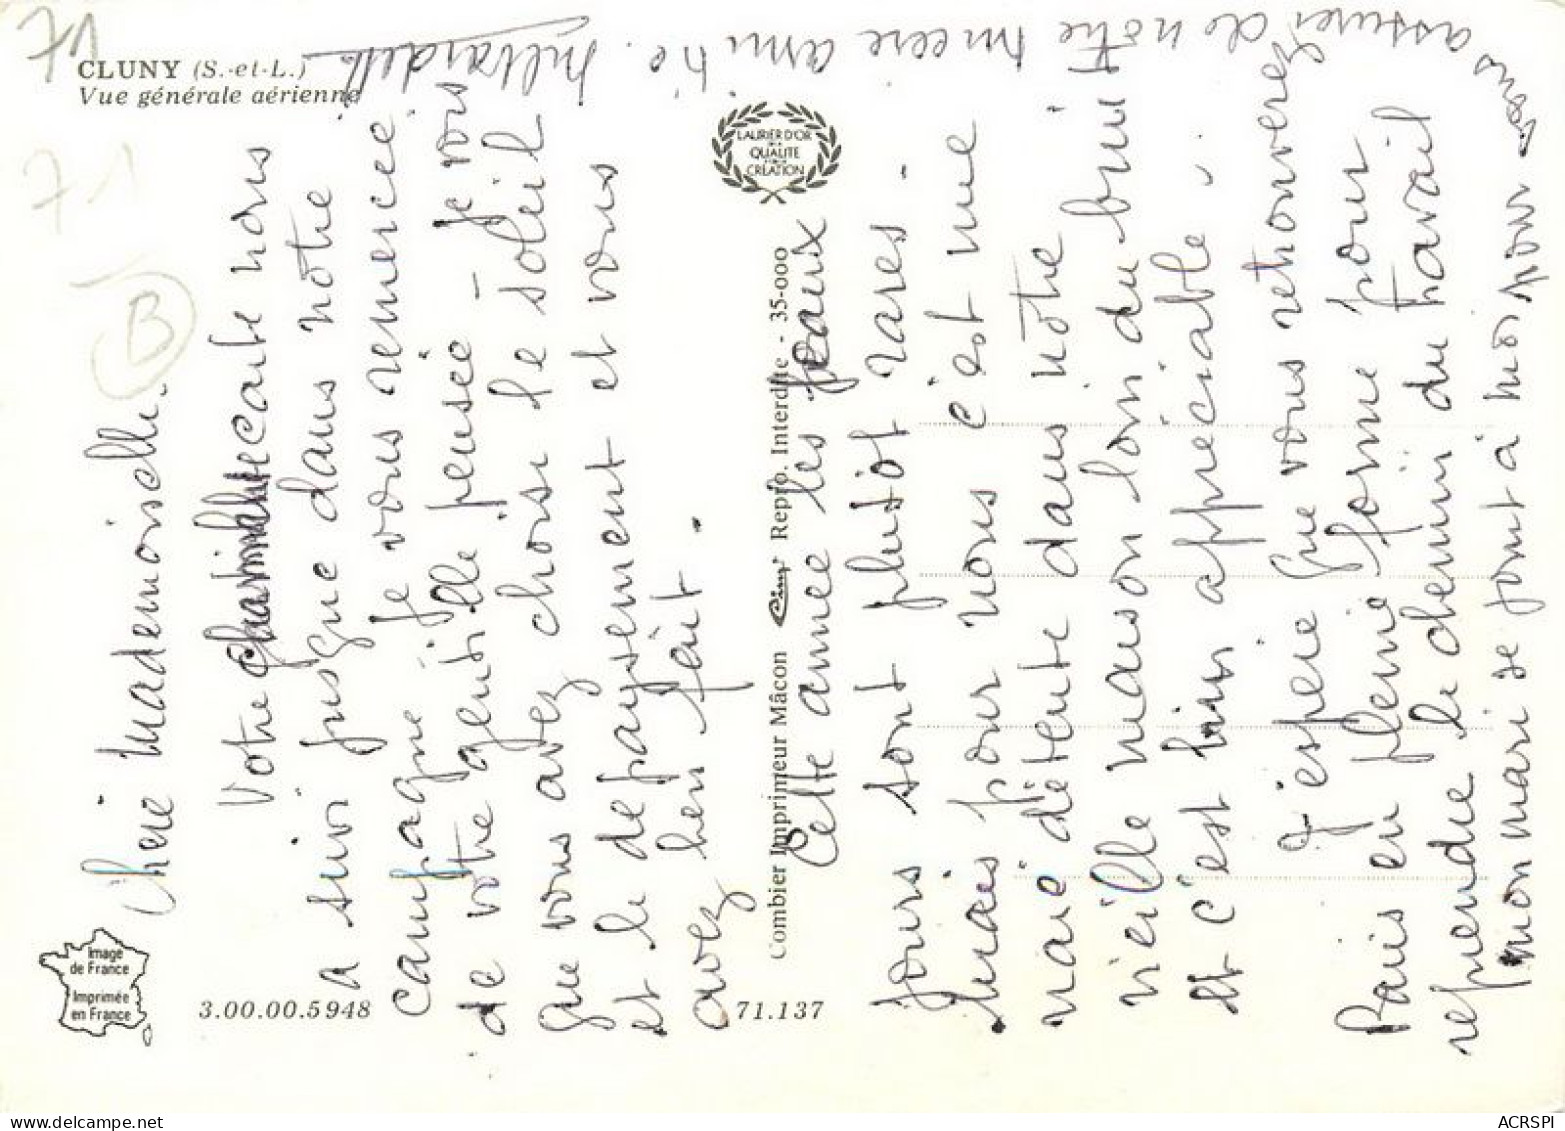 CLUNY (S.-et-L.)
Vue générale aérienne
71
B
LAURIER D'OR
DE LA
QUALITE
POUR LA
CREATION
Image
de France
Imprimée
en France
3.00.00.5948
71.137
Combier Imprimeur Mâcon Cim Repro. Interdite - 35-000
Chère Mademoiselle.
Votre carte nous
a suivi jusque dans nôtre
campagne. Je vous remercie
de votre gentille pensée - Je vois
que vous avez choisi le soleil
et le depaysement et vous
avez bien fait.
Cette année les beaux
jours sont plutôt rares -
Mais pour nous c'est une
vraie détente dans nôtre
vieille maison loin du bruit
et c'est bien appréciable.
J'espère que vous retrouverez
Paris en pleine forme pour
reprendre le chemin du travail
mon mari se joint à moi pour vous
assurer de notre sincere amitié.